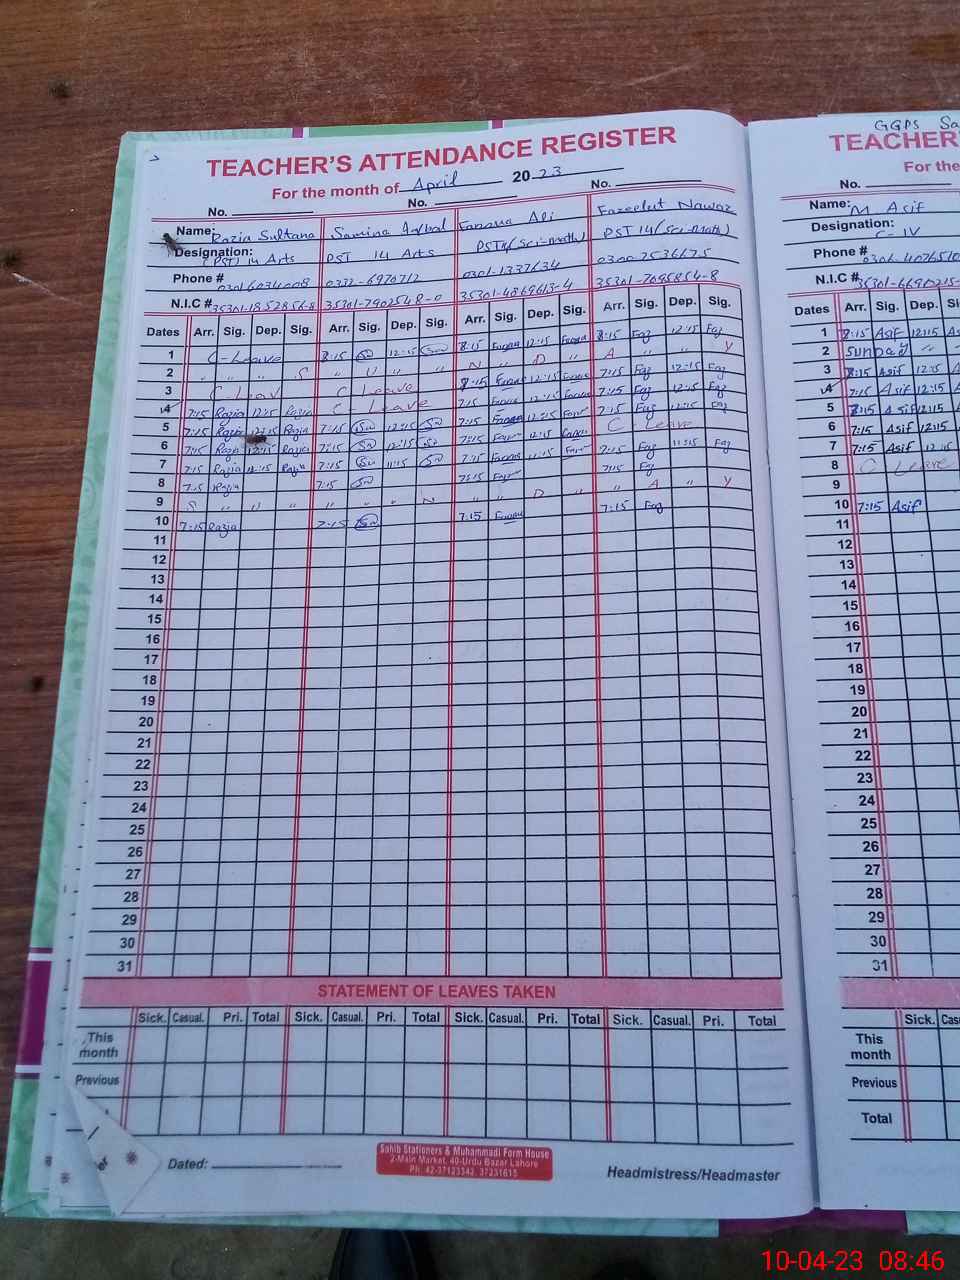 GGPS
TEACHER'S ATTENDANCE REGISTER
For the month of April 2023
No. No. No.
Name: Razia Sultana Samina Iqbal Farzana Ali Fazeelut Nawaz
Designation: (PST) 14 Arts PST 14 Arts PST 14 (Sci-math) PST 14 (Sci-math)
Phone # 03016034008 0332-6970712 0301-1337634 03002536675
N.I.C # 35301-1852856-8 35301-7902548-0 35301-4369613-4 35301-7095854-8
Dates Arr. Sig. Dep. Sig. Arr. Sig. Dep. Sig. Arr. Sig. Dep. Sig. Arr. Sig. Dep. Sig.
1 C-Leave 8:15 12:15 8:15 12:15 8:15 Faz 12:15 Faz
2 " " " S " U " " N " D " A " " Y
3 C-Leav C Leave 7:15 12:15 7:15 Faz 12:15 Faz
4 7:15 Razia 12:15 Razia C-Leave 7:15 12:15 7:15 Faz 12:15 Faz
5 7:15 Razia 12:15 Razia 7:15 12:15 7:15 12:15 7:15 Faz 12:15 Faz
6 7:15 Razia 12:15 Razia 7:15 12:15 7:15 12:15 C-Leave
7 7:15 Razia 12:15 Razia 7:15 11:15 7:15 11:15 7:15 Faz 11:15 Faz
8 7:15 Razia 7:15 7:15 7:15 Faz
9 S " U " " " " N " " D " " A " Y
10 7:15 Razia 7:15 7:15 7:15 Faz
11
12
13
14
15
16
17
18
19
20
21
22
23
24
25
26
27
28
29
30
31
STATEMENT OF LEAVES TAKEN
Sick. Casual. Pri. Total Sick. Casual. Pri. Total Sick. Casual. Pri. Total Sick. Casual. Pri. Total
This month
Previous
Dated:
Sahib Stationers & Muhammadi Form House
2-Main Market, 40-Urdu Bazar Lahore
Ph: 42-37123342, 37231615
Headmistress/Headmaster
TEACHER'
For the
No.
Name: M Asif
Designation: C-IV
Phone #
N.I.C #
Dates Arr. Sig. Dep.
1 8:15 Asif 12:15
2 Sunday " "
3 8:15 Asif 12:15
4 7:15 Asif 12:15
5 7:15 Asif 12:15
6 7:15 Asif 12:15
7 7:15 Asif 12:15
8 C Leave
9
10 7:15 Asif
11
12
13
14
15
16
17
18
19
20
21
22
23
24
25
26
27
28
29
30
31
Sick.
This month
Previous
Total
10-04-23 08:46